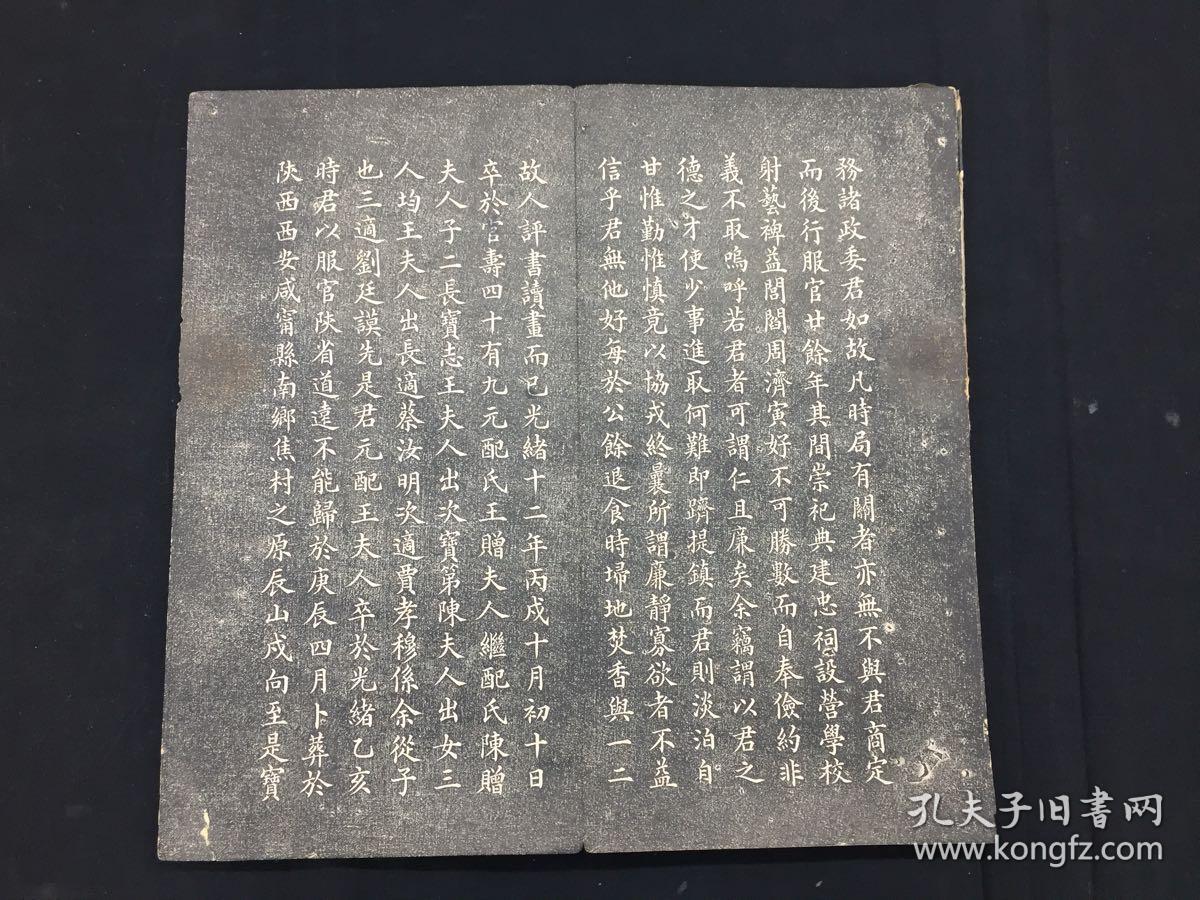 務諸政委君如故凡時局有關者亦無不與君商定
而後行服官廿餘年其間崇祀典建忠祠設營學校
射藝裨益閭閻周濟寅好不可勝數而自奉儉約非
義不取嗚呼若君者可謂仁且廉矣余竊謂以君之
德之才使少事進取何難即躋提鎮而君則淡泊自
甘惟勤惟慎竟以協戎終曩所謂廉靜寡欲者不益
信乎君無他好每於公餘退食時埽地焚香與一二
故人評書讀畫而已光緒十二年丙戍十月初十日
卒於官壽四十有九元配氏王贈夫人繼配氏陳贈
夫人子二長寶志王夫人出次寶第陳夫人出女三
人均王夫人出長適蔡汝明次適賈孝穆係余從子
也三適劉廷謨先是君元配王夫人卒於光緒乙亥
時君以服官陝省道遠不能歸於庚辰四月卜葬於
陝西西安咸甯縣南鄉焦村之原辰山戍向至是寶
孔夫子旧书网
www.kongfz.com